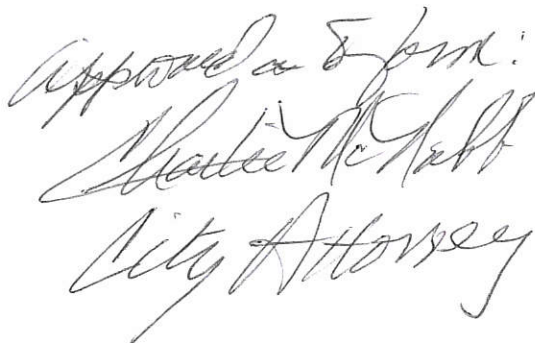 Approved as to form:
Charlie McNabb
City Attorney